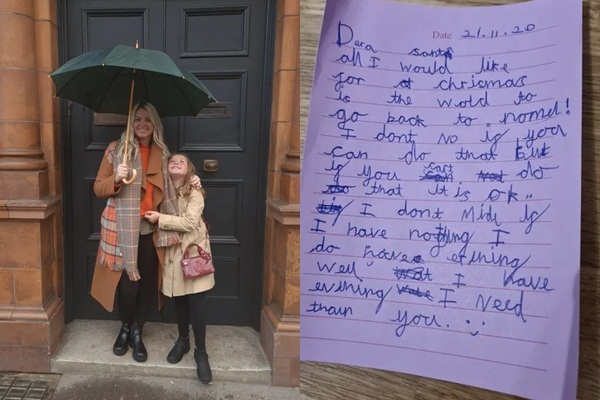 Date 21.11.20
Dera santa
all I would like
for at chrismas
is the wold to
go back to nomel!
I dont no if you
can do that but
if you cant do
that it is ok..
I dont Mide if
I have nothing I
do have evining
well I have
evining I need
than you. :-)